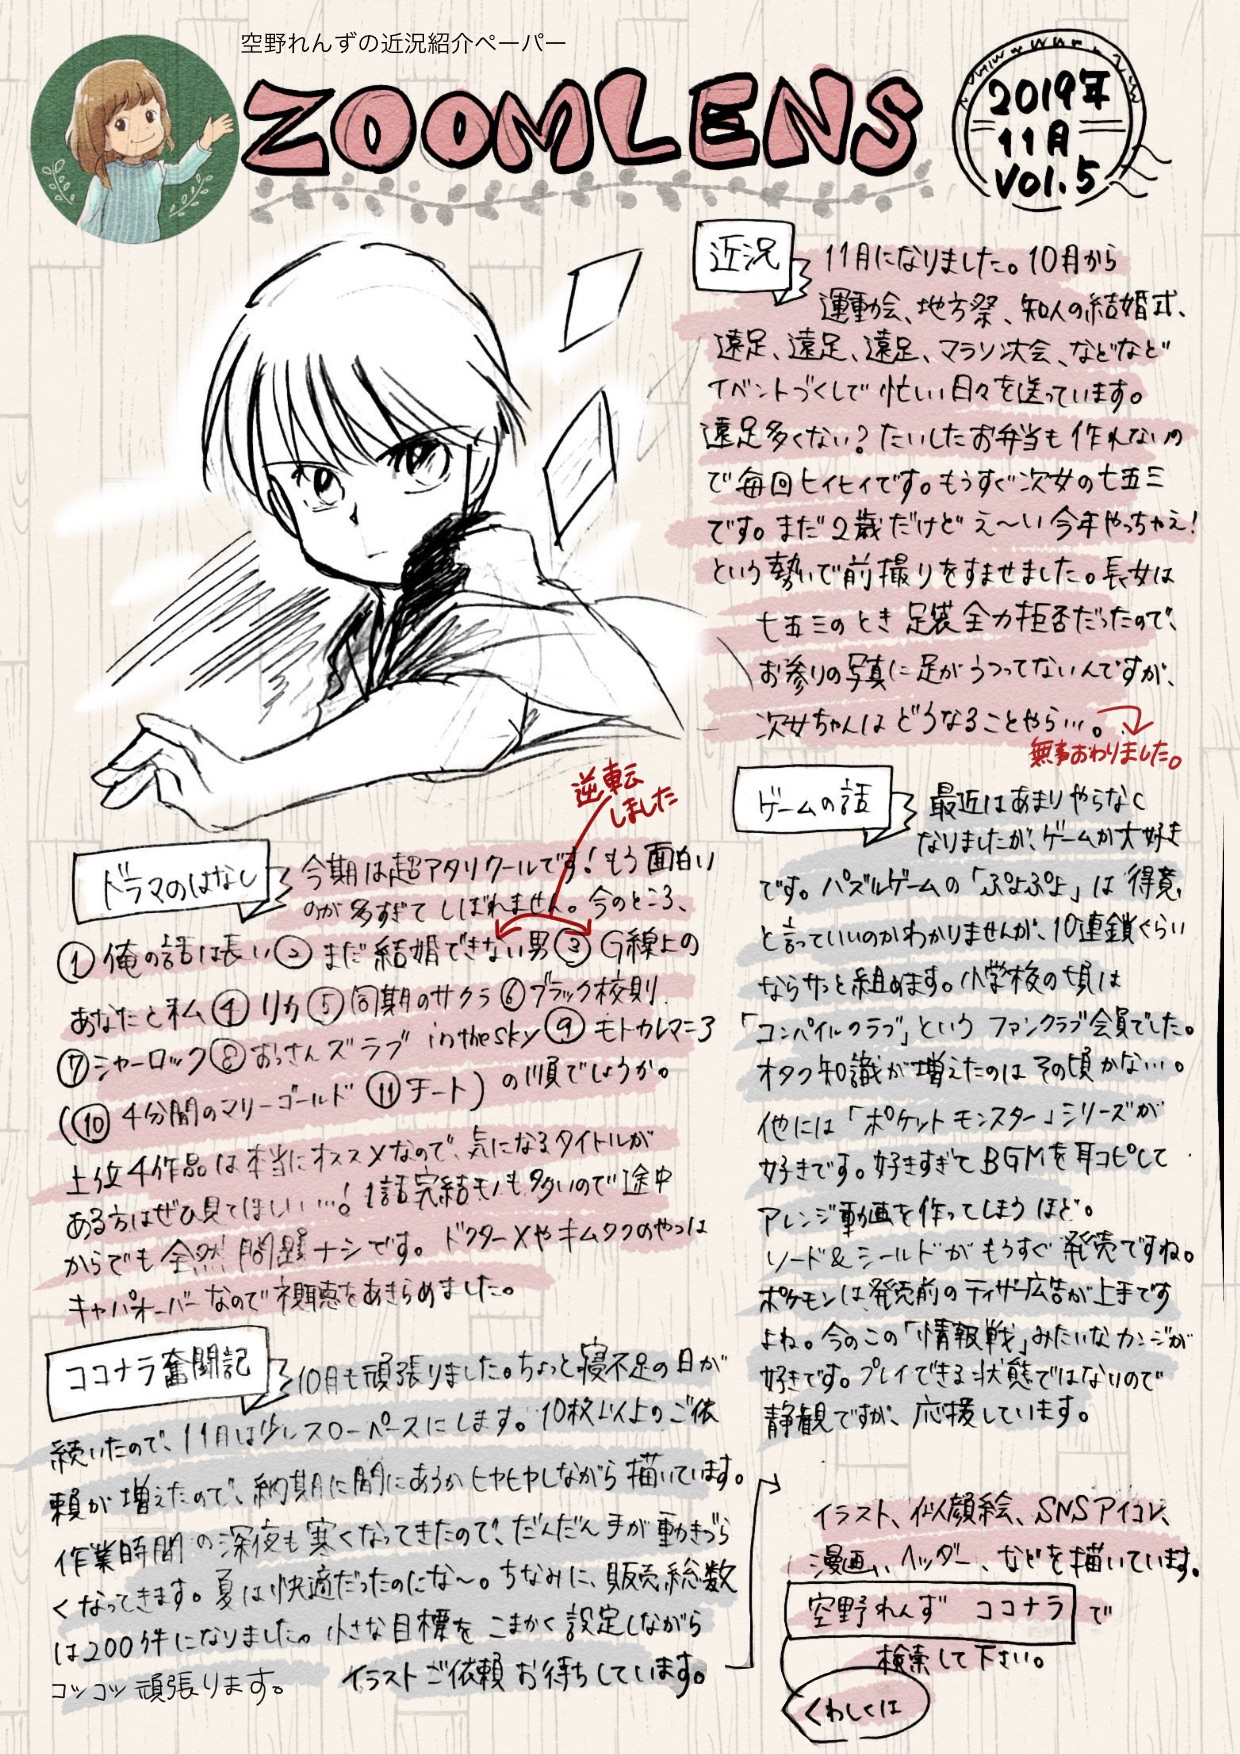 空野れんずの近況紹介ペーパー
ZOOMLENS
2019年
11月
Vol.5
近況
11月になりました。10月から
運動会、地方祭、知人の結婚式、
遠足、遠足、遠足、マラソン大会、などなど
イベントづくしで忙しい日々を送っています。
遠足多くない？たいしたお弁当も作れないの
で毎回ヒイヒイです。もうすぐ次女の七五三
です。まだ2歳だけどえ〜い今年やっちゃえ！
という勢いで前撮りをすませました。長女は
七五三のとき足袋全力拒否だったので、
お参りの写真に足がうつってないんですが、
次女ちゃんはどうなることやら…。
無事おわりました。
ゲームの話
最近はあまりやらなく
なりましたが、ゲームが大好き
です。パズルゲームの「ぷよぷよ」は得意
と言っていいのかわかりませんが、10連鎖ぐらい
ならサッと組めます。小学校の頃は
「コンパイルクラブ」というファンクラブ会員でした。
オタク知識が増えたのはその頃かな…。
他には「ポケットモンスター」シリーズが
好きです。好きすぎてBGMを耳コピして
アレンジ動画を作ってしまうほど。
ソード&シールドがもうすぐ発売ですね。
ポケモンは発売前のティザー広告が上手です
よね。今のこの「情報戦」みたいなカンジが
好きです。プレイできる状態ではないので
静観ですが、応援しています。
逆転
しました
ドラマのはなし
今期は超アタリクールです！もう面白い
のが多すぎてしばれません。今のところ、
①俺の話は長い②まだ結婚できない男③G線上の
あなたと私④リカ⑤同期のサクラ⑥ブラック校則
⑦シャーロック⑧おっさんズラブ in the sky⑨モトカレマニア
(⑩4分間のマリーゴールド⑪チート)の順でしょうか。
上位4作品は本当にオススメなので、気になるタイトルが
ある方はぜひ見てほしい…！1話完結モノも多いので途中
からでも全然問題ナシです。ドクターXやキムタクのやつは
キャパオーバーなので視聴をあきらめました。
ココナラ奮闘記
10月も頑張りました。ちょっと寝不足の日が
続いたので、11月は少しスローペースにします。10枚以上のご依
頼が増えたので、納期に間にあうかヒヤヒヤしながら描いています。
作業時間の深夜も寒くなってきたので、だんだん手が動きづら
くなってきます。夏は快適だったのにな〜。ちなみに、販売総数
は200件になりました。小さな目標をこまかく設定しながら
コツコツ頑張ります。 イラストご依頼お待ちしています。
イラスト、似顔絵、SNSアイコン、
漫画、ヘッダー、などを描いています。
空野れんず ココナラで
検索して下さい。
くわしくは